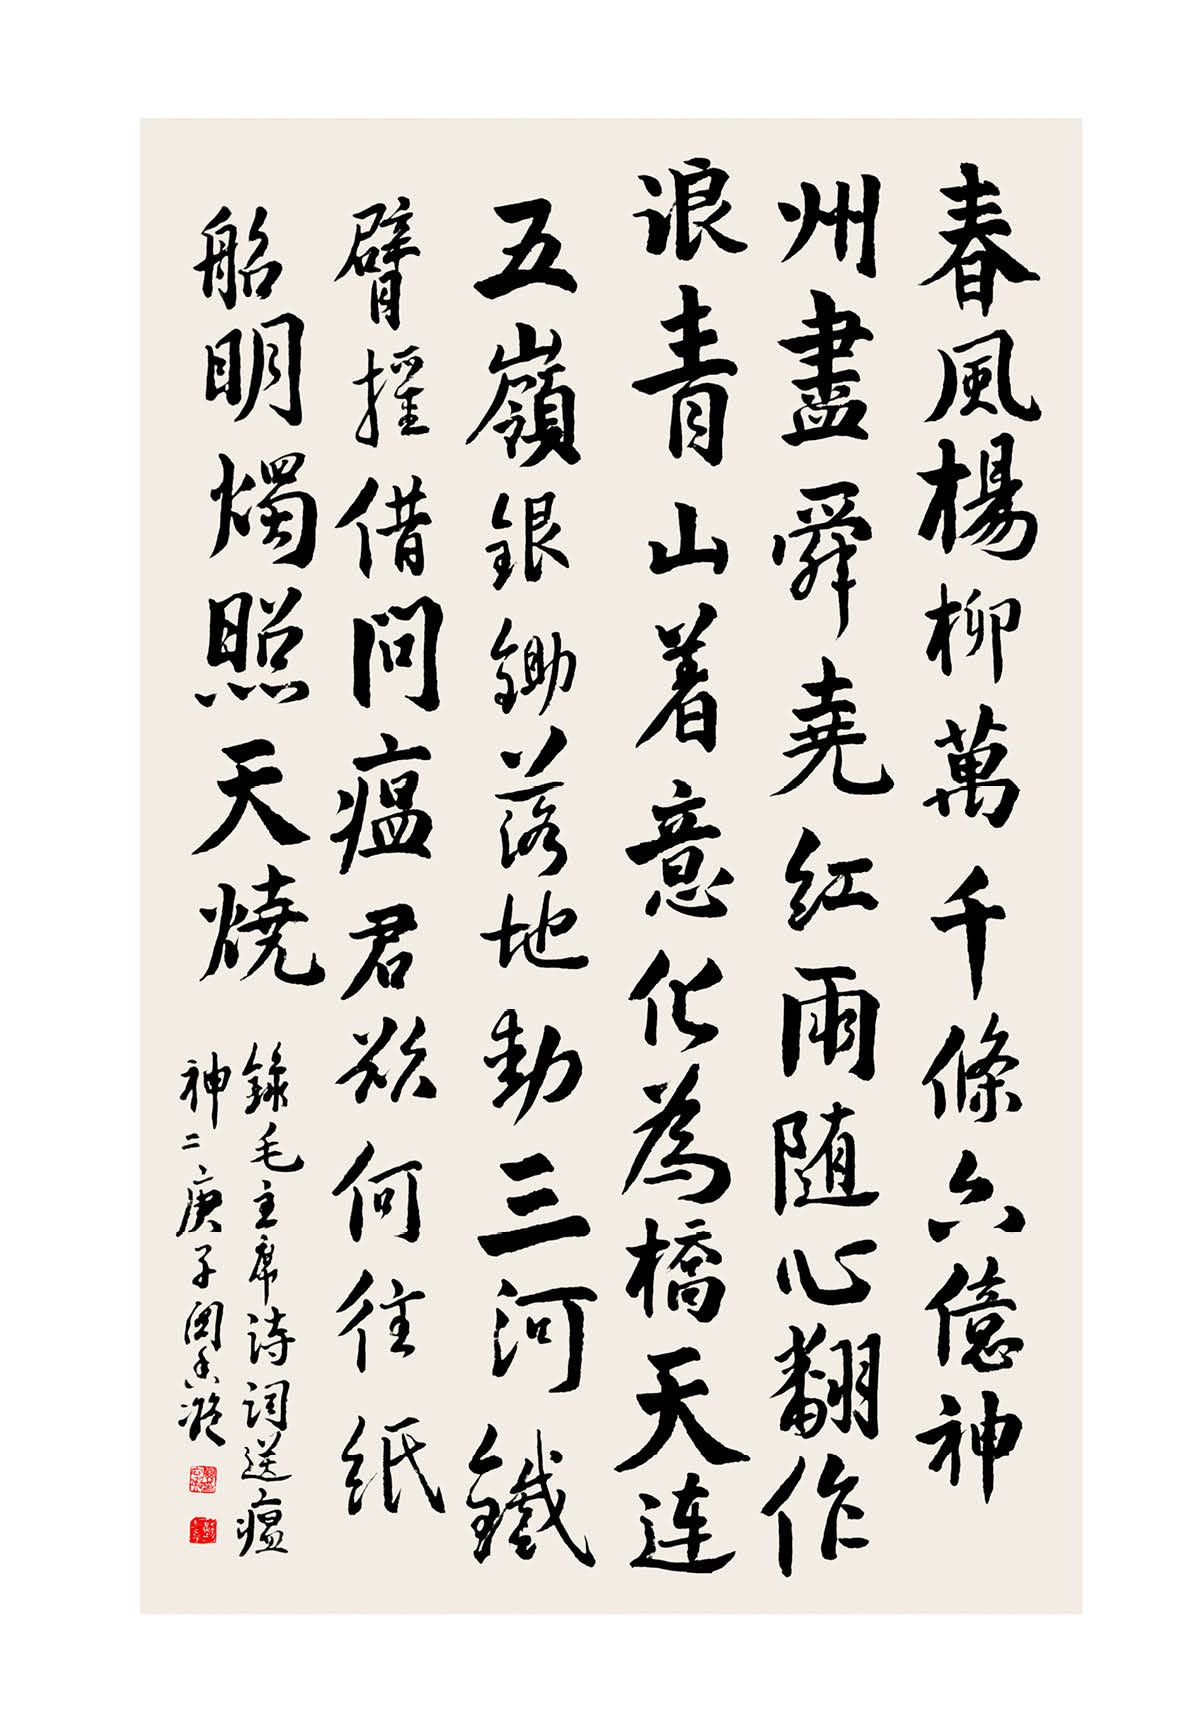 春風楊柳萬千條六億神
州盡舜堯红雨随心翻作
浪青山着意化為橋天连
五嶺銀鋤落地動三河鐵
臂搖借問瘟君欲何往紙
船明燭照天燒
錄毛主席诗词送瘟
神二庚子